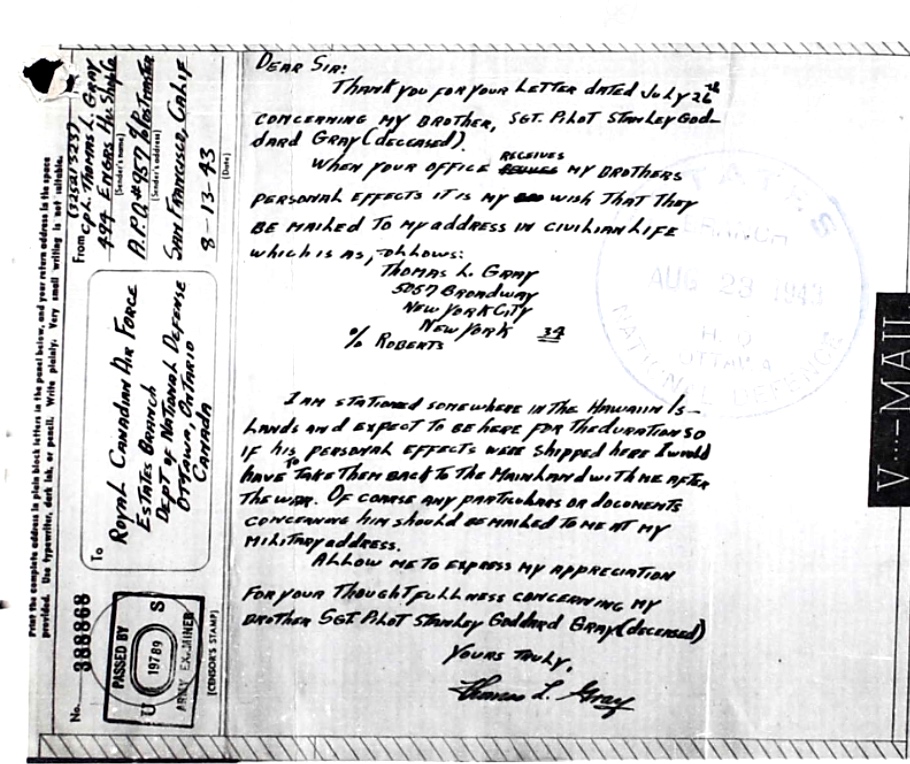 Print the complete address in plain block letters in the panel below, and your return address in the space
provided. Use typewriter, dark ink, or pencil. Write plainly. Very small writing is not suitable.
No. 388868
PASSED BY
U S
19789
ARMY EXAMINER
(CENSOR'S STAMP)
To
ROYAL CANADIAN AIR FORCE
ESTATES BRANCH
DEPT OF NATIONAL DEFENSE
OTTAWA, ONTARIO
CANADA
(32521323)
From CPL. THOMAS L. GRAY
(Sender's name)
494 ENGRS
(Sender's address)
A.P.O. #957 % POSTMASTER
SAN FRANCISCO, CALIF
8-13-43
(Date)
DEAR SIR:
THANK YOU FOR YOUR LETTER DATED JULY 26th
CONCERNING MY BROTHER, SGT. PILOT STANLEY GOD-
DARD GRAY (DECEASED).
WHEN YOUR OFFICE RECEIVES MY BROTHERS
PERSONAL EFFECTS IT IS MY WISH THAT THEY
BE MAILED TO MY ADDRESS IN CIVILIAN LIFE
WHICH IS AS FOLLOWS:
THOMAS L. GRAY
5057 BROADWAY
NEW YORK CITY
NEW YORK 34
% ROBERTS
I AM STATIONED SOMEWHERE IN THE HAWAIIN IS-
LANDS AND EXPECT TO BE HERE FOR THE DURATION SO
IF HIS PERSONAL EFFECTS WERE SHIPPED HERE I WOULD
HAVE TO TAKE THEM BACK TO THE MAINLAND WITH ME AFTER
THE WAR. OF COARSE ANY PARTICULARS OR DOCOMENTS
CONCERNING HIM SHOULD BE MAILED TO ME AT MY
MILITARY ADDRESS.
ALLOW ME TO EXPRESS MY APPRECIATION
FOR YOUR THOUGHTFULLNESS CONCERNING MY
BROTHER SGT PILOT STANLEY GODDARD GRAY (DECEASED)
YOURS TRULY,
Thomas L. Gray
BRANCH
AUG 23 1943
H.Q
OTTAWA
NATIONAL DEFENCE
V···—MAIL